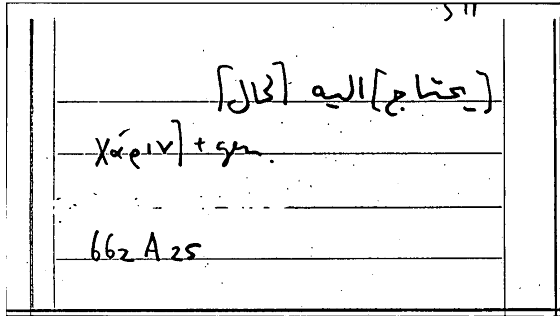 [يحتاج] اليه [لحال]
χάριν] + gen.
662 A 25